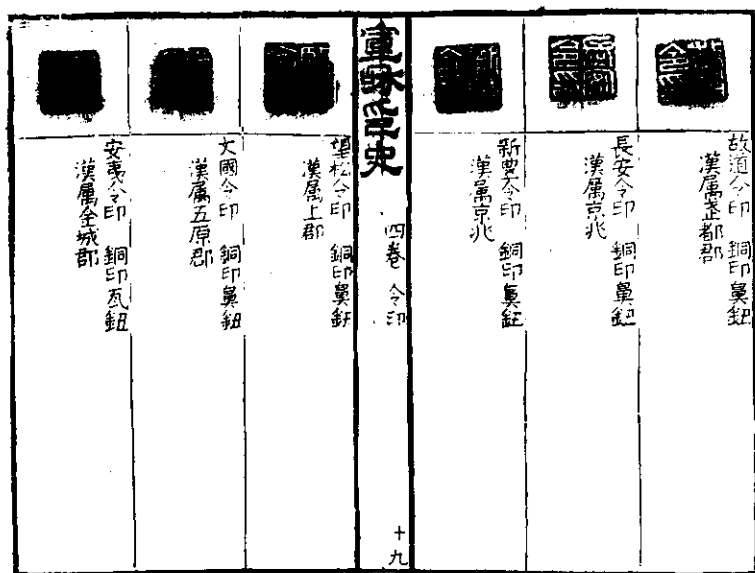 故道令印　銅印鼻鈕
漢属武都郡
長安令印　銅印鼻鈕
漢属京兆
新豊令印　銅印鼻鈕
漢属京兆
四卷　令印
十九
望松令印　銅印鼻鈕
漢属上郡
文國令印　銅印鼻鈕
漢属五原郡
安夷令印　銅印瓦鈕
漢属金城郡